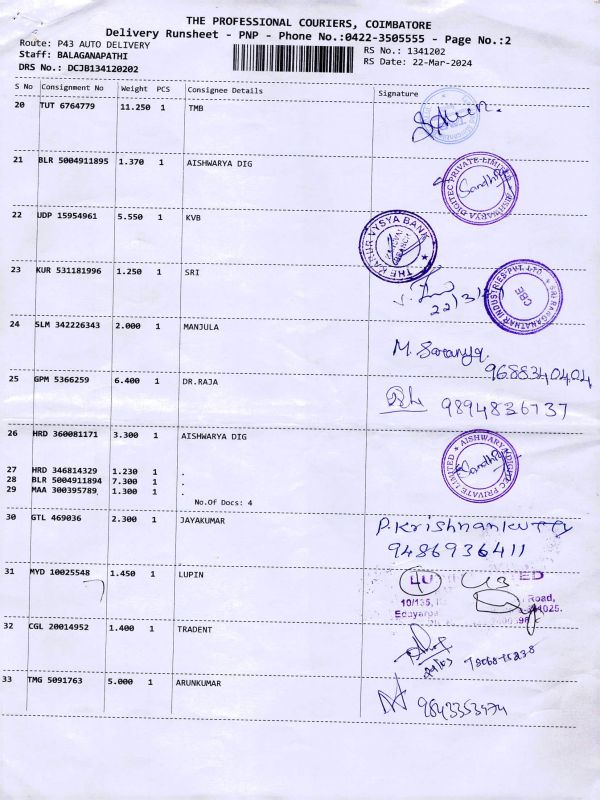 THE PROFESSIONAL COURIERS, COIMBATORE
Delivery Runsheet - PNP - Phone No.:0422-3505555 - Page No.:2
Route: P43 AUTO DELIVERY
RS No.: 1341202
Staff: BALAGANAPATHI
RS Date: 22-Mar-2024
DRS No.: DCJB134120202
S No Consignment No Weight PCS Consignee Details Signature
20 TUT 6764779 11.250 1 TMB
21 BLR 5004911895 1.370 1 AISHWARYA DIG
AISHWARYA DIGITEC PRIVATE LIMITED
Sandhiya
22 UDP 15954961 5.550 1 KVB
THE KARUR VYSYA BANK
23 KUR 531181996 1.250 1 SRI
22/3/
SRI RANGANATHAR INDUSTRIES PVT. LTD.
CBE
24 SLM 342226343 2.000 1 MANJULA
M. Saranya.
9688340404
25 GPM 5366259 6.400 1 DR.RAJA
9894836737
26 HRD 360081171 3.300 1 AISHWARYA DIG
AISHWARYA DIGITEC PRIVATE LIMITED
Sandhiya
27 HRD 346814329 1.230 1 .
28 BLR 5004911894 7.300 1 .
29 MAA 300395789 1.300 1 .
No.Of Docs: 4
30 GTL 469036 2.300 1 JAYAKUMAR
P.Krishnankutty
9486936411
31 MYD 10025548 1.450 1 LUPIN
LU
10/135,
Road,
32 CGL 20014952 1.400 1 TRADENT
33 TMG 5091763 5.000 1 ARUNKUMAR
9843353474